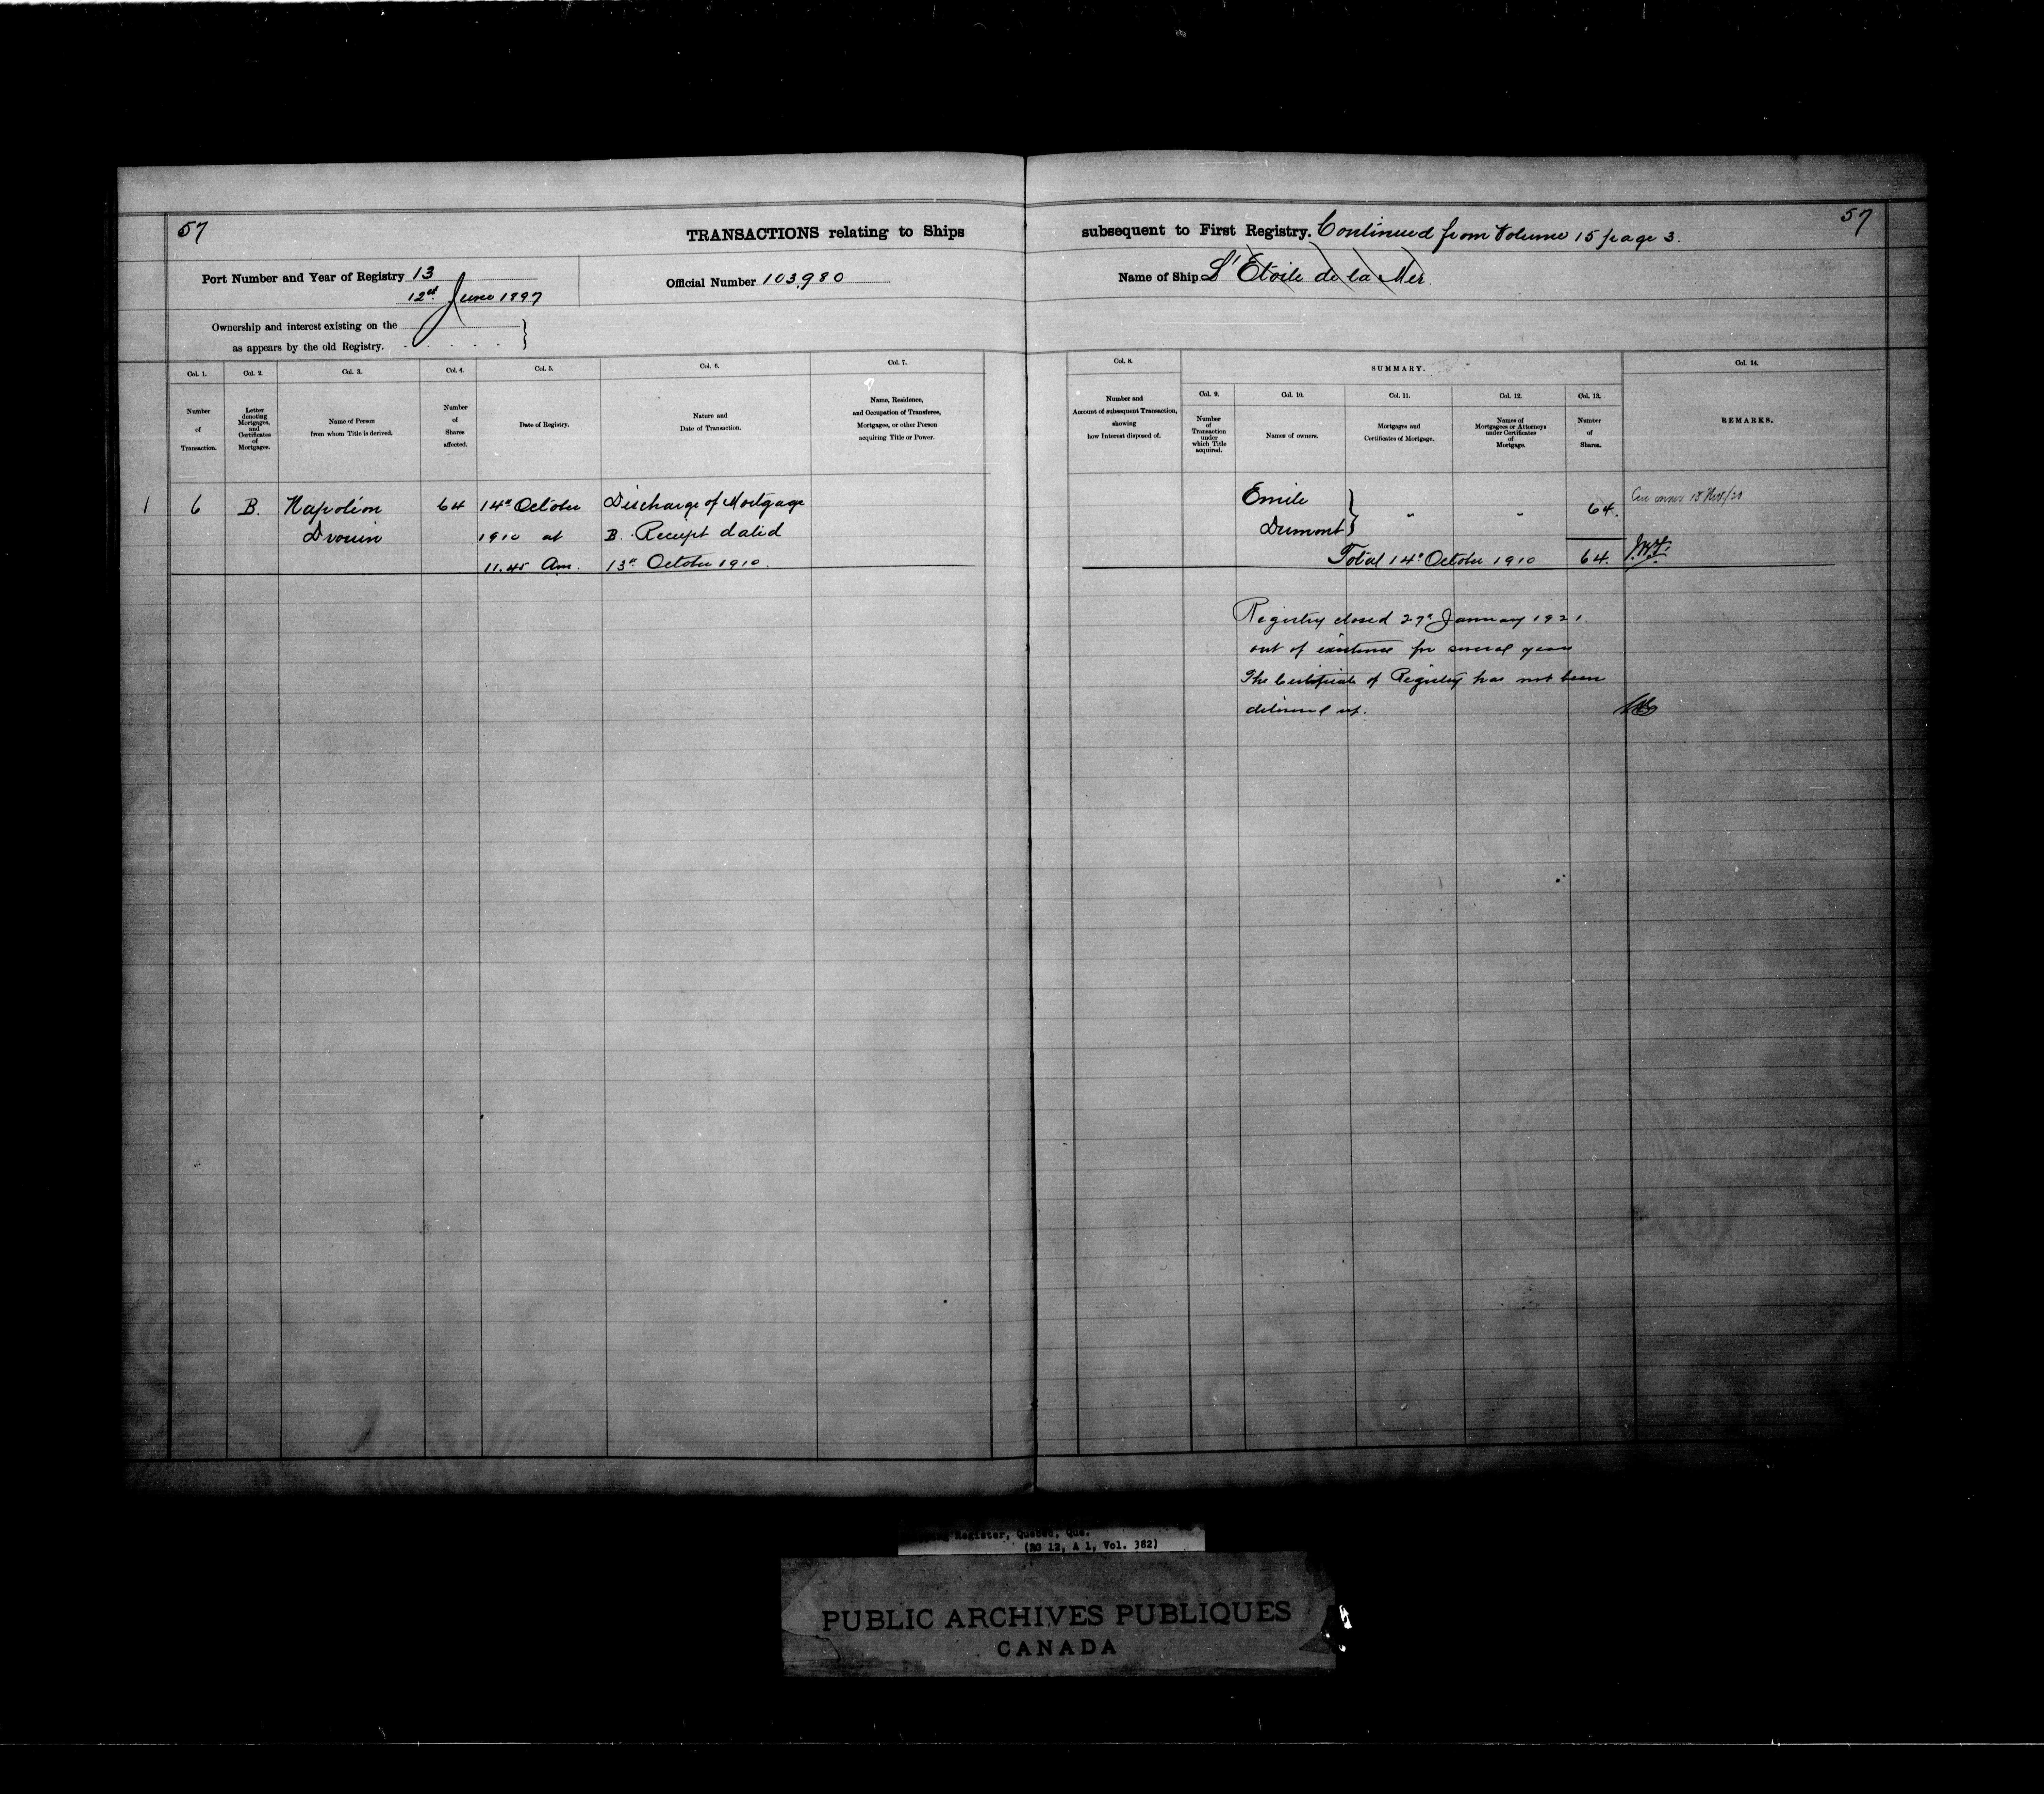 57
TRANSACTIONS relating to Ships
subsequent to First Registry. Continued from Volume 15 page 3.
57
Port Number and Year of Registry 13
12th June 1897
Official Number 103,980
Name of Ship L'Etoile de la Mer
Ownership and interest existing on the
as appears by the old Registry.
Col. 1.
Number
of
Transaction.
Col. 2.
Letter
denoting
Mortgages,
and
Certificates
of
Mortgages.
Col. 3.
Name of Person
from whom Title is derived.
Col. 4.
Number
of
Shares
affected.
Col. 5.
Date of Registry.
Col. 6.
Nature and
Date of Transaction.
Col. 7.
Name, Residence,
and Occupation of Transferee,
Mortgagee, or other Person
acquiring Title or Power.
Col. 8.
Number and
Account of subsequent Transaction,
showing
how Interest disposed of.
SUMMARY.
Col. 9.
Number
of
Transaction
under
which Title
acquired.
Col. 10.
Names of owners.
Col. 11.
Mortgages and
Certificates of Mortgage.
Col. 12.
Names of
Mortgagees or Attorneys
under Certificates
of
Mortgage.
Col. 13.
Number
of
Shares.
Col. 14.
REMARKS.
1
6
B.
Napoléon
Drouin
64
14th October
1910 at
11.45 Am.
Discharge of Mortgage
B. Receipt dated
13th October 1910.
Emile
Dumont
"
"
64.
Total 14th October 1910
64.
owner 15 Nov/20
Registry closed 27th January 1921
out of existence for several years
The Certificate of Registry has not been
delivered up.
Register, Quebec, Que.
(RG 12, A 1, Vol. 382)
PUBLIC ARCHIVES PUBLIQUES
CANADA